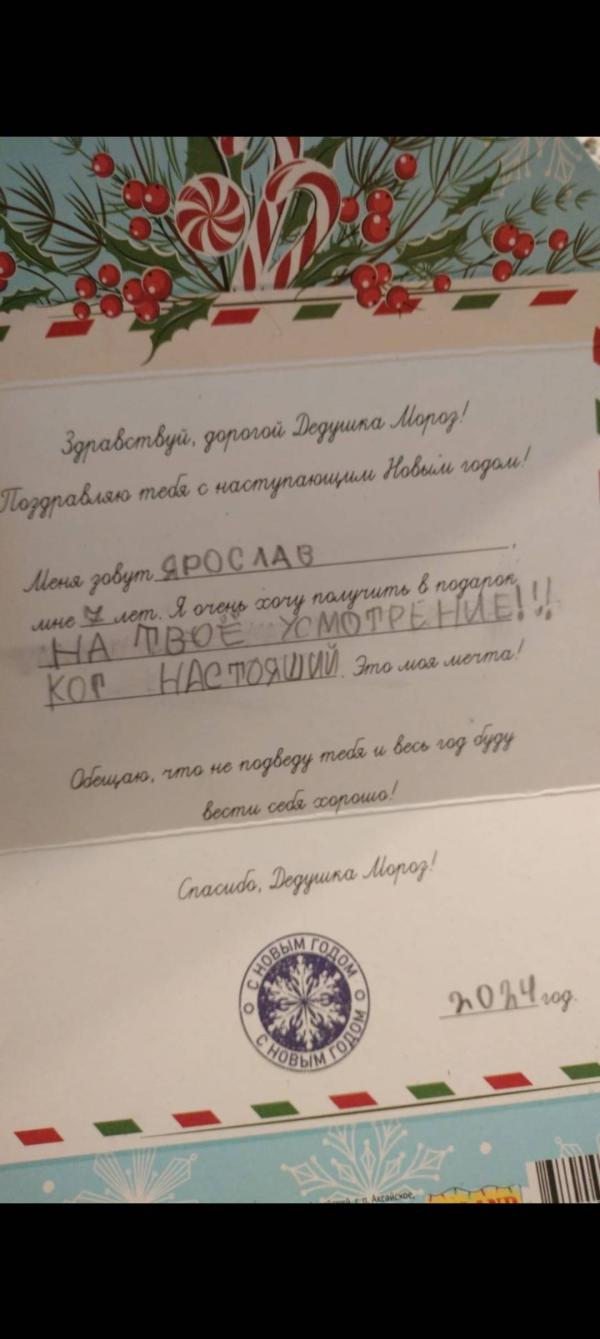 Здравствуй, дорогой Дедушка Мороз!
Поздравляю тебя с наступающим Новым годом!
Меня зовут ЯРОСЛАВ,
мне 7 лет. Я очень хочу получить в подарок
НА ТВОЁ УСМОТРЕНИЕ!!!
КОГ НАСТОЯШИЙ. Это моя мечта!
Обещаю, что не подведу тебя и весь год буду
вести себя хорошо!
Спасибо, Дедушка Мороз!
С НОВЫМ ГОДОМ
С НОВЫМ ГОДОМ
2024 год.
с.п. Аксайское,